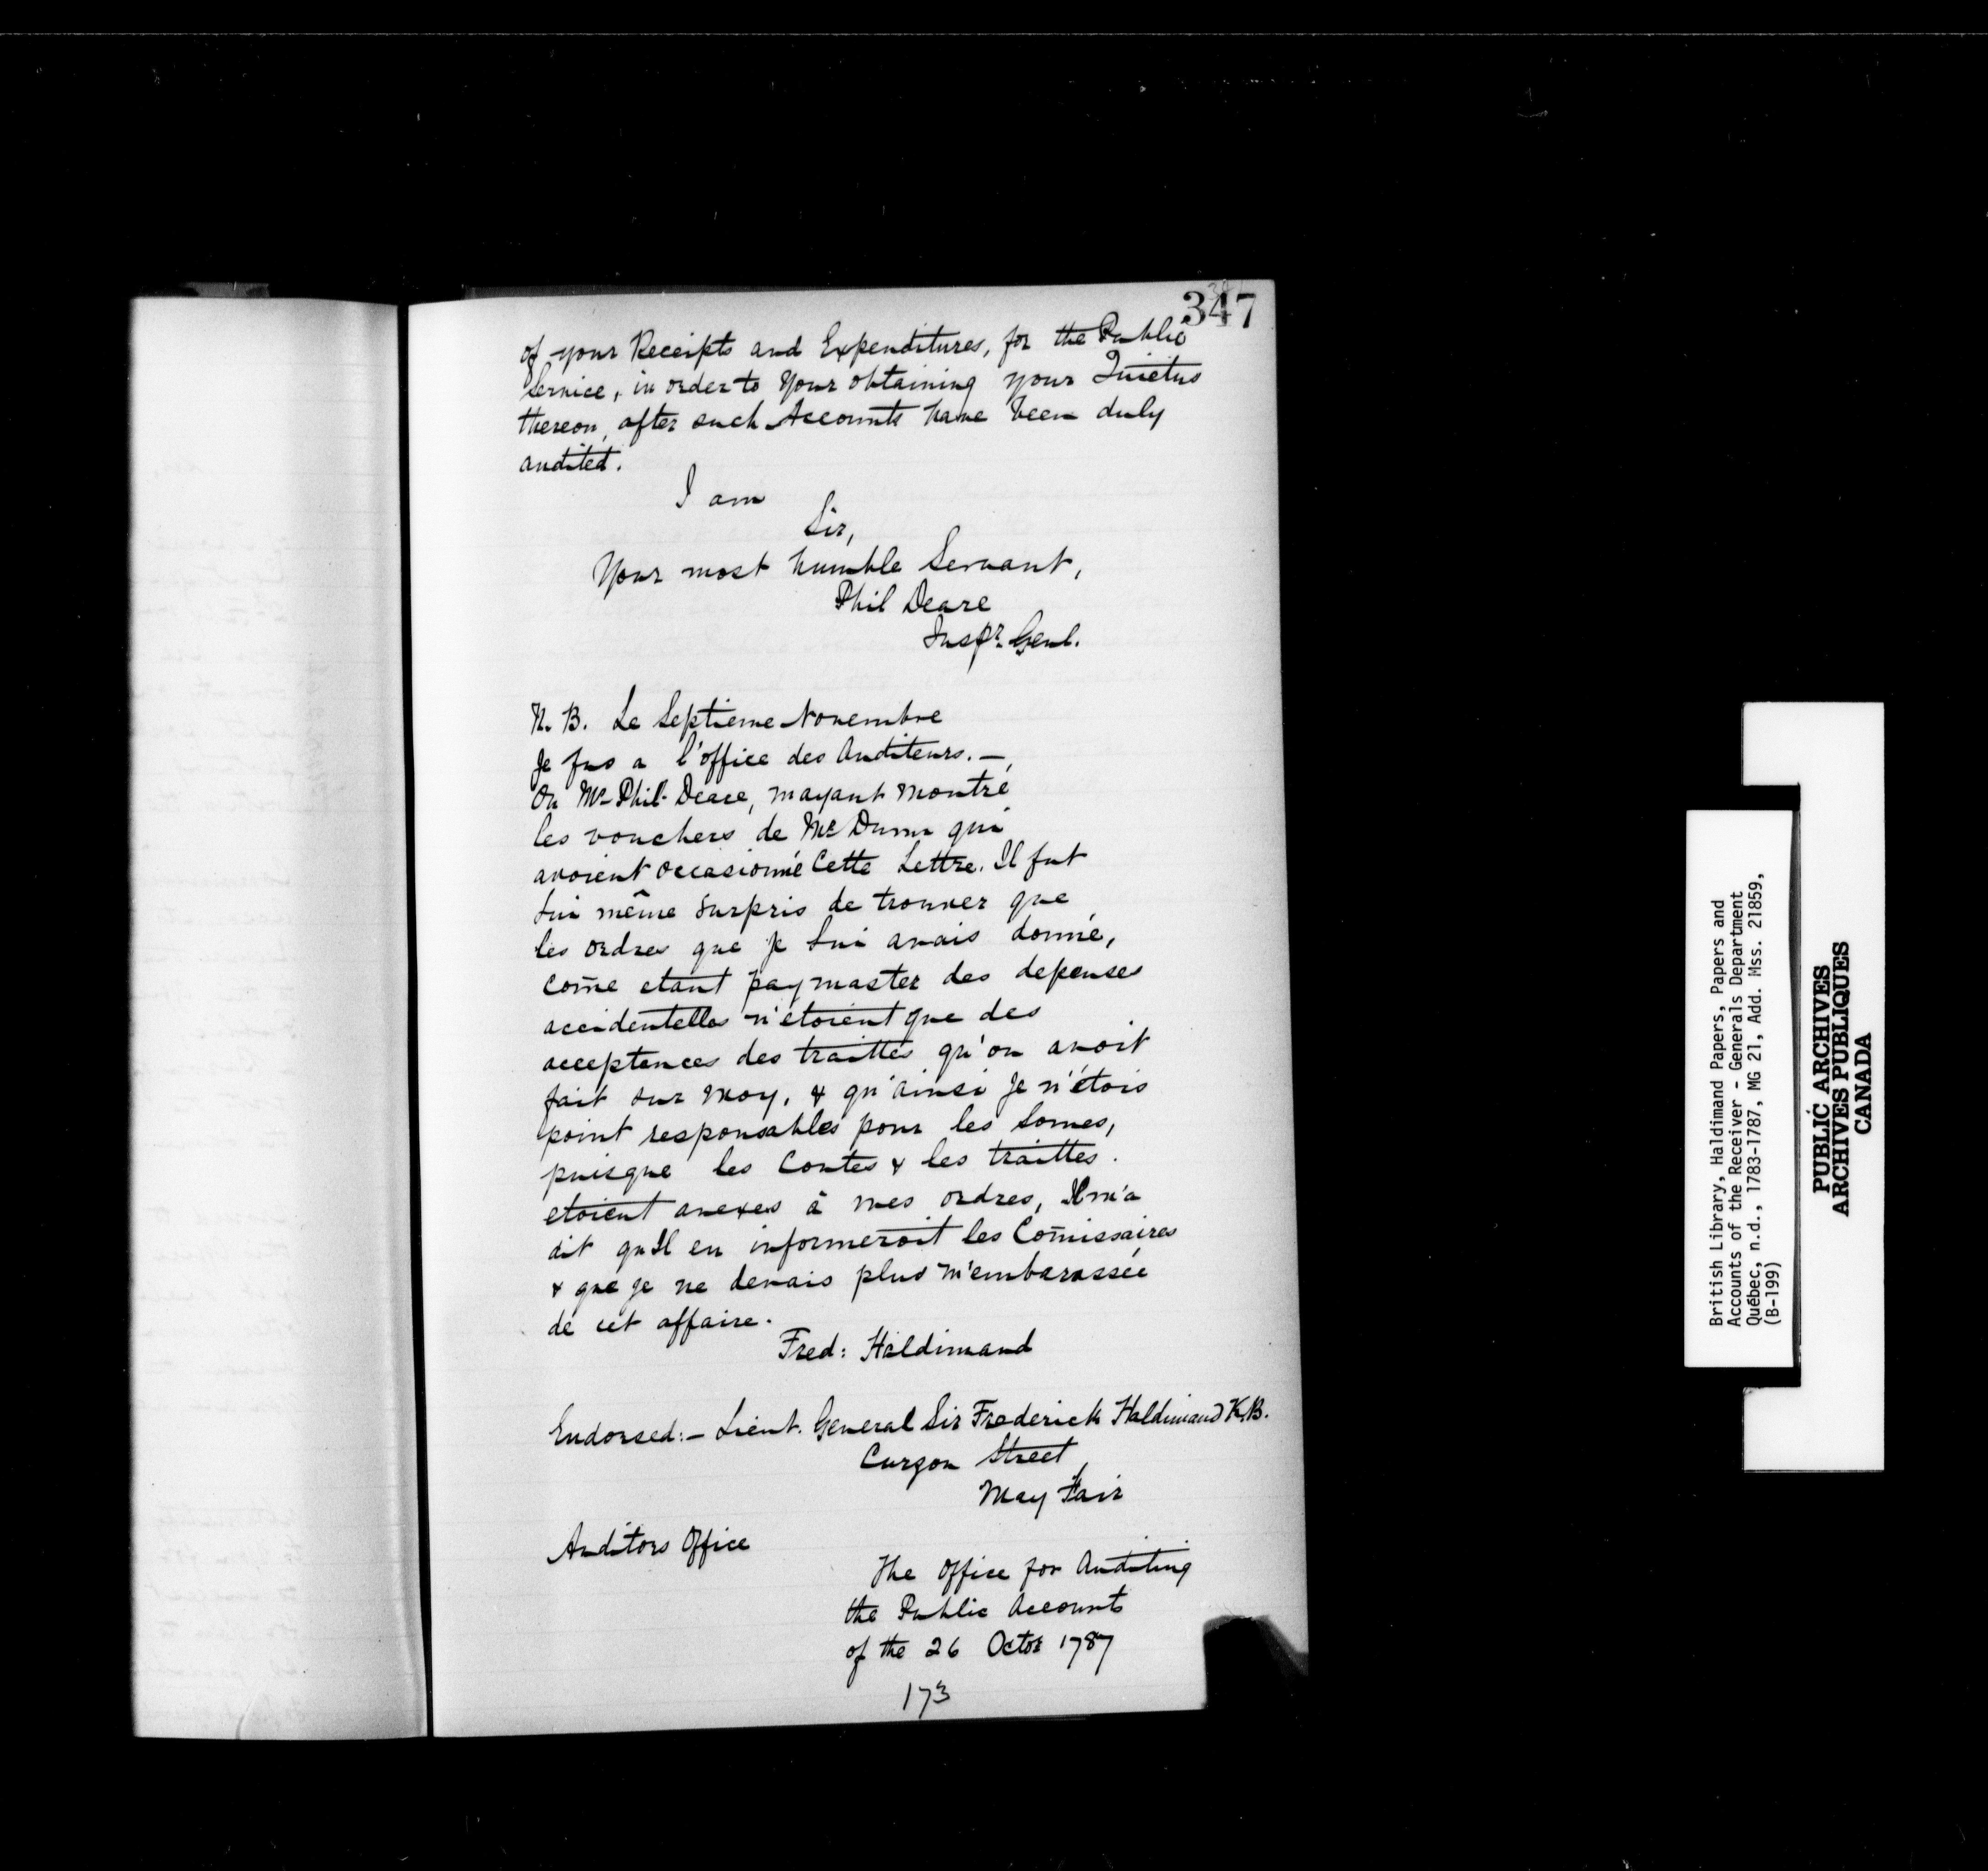 347
of your Receipts and Expenditures, for the Public
Service, in order to Your obtaining your Quietus
thereon, after such Accounts have been duly
audited.
I am
Sir,
Your most humble Servant,
Phil Deare
Inspr. Genl.
N. B. Le Septieme Novembre
Je fus a l'office des Auditeurs. —
Ou Mr Phil. Deare, mayant montré
les vouchers de Mr Dunn qui
avoient occasionné Cette Lettre. Il fut
Lui même surpris de trouver que
les ordres que je Lui avais donné,
Com̄e etant paymaster des depenses
accidentelles n'étoient que des
acceptences des traittés qu'on avoit
fait sur Moy, & qu'ainsi Je n'étois
point responsables pour les Somes,
puisque les Contes & les traittes.
etoient anexes à mes ordres, Il m'a
dit qu'Il en informeroit les Com̄issaires
& que je ne devais plus m'embarassée
de cet affaire.
Fred: Haldimand
Endorsed:— Lieut. General Sir Frederick Haldimand K.B.
Curzon Street
May Fair
Auditors Office
The Office for Auditing
the Public Accounts
of the 26 Octor 1787
173
British Library, Haldimand Papers, Papers and
Accounts of the Receiver - Generals Department
Québec, n.d., 1783-1787, MG 21, Add. Mss. 21859,
(B-199)
PUBLIC ARCHIVES
ARCHIVES PUBLIQUES
CANADA